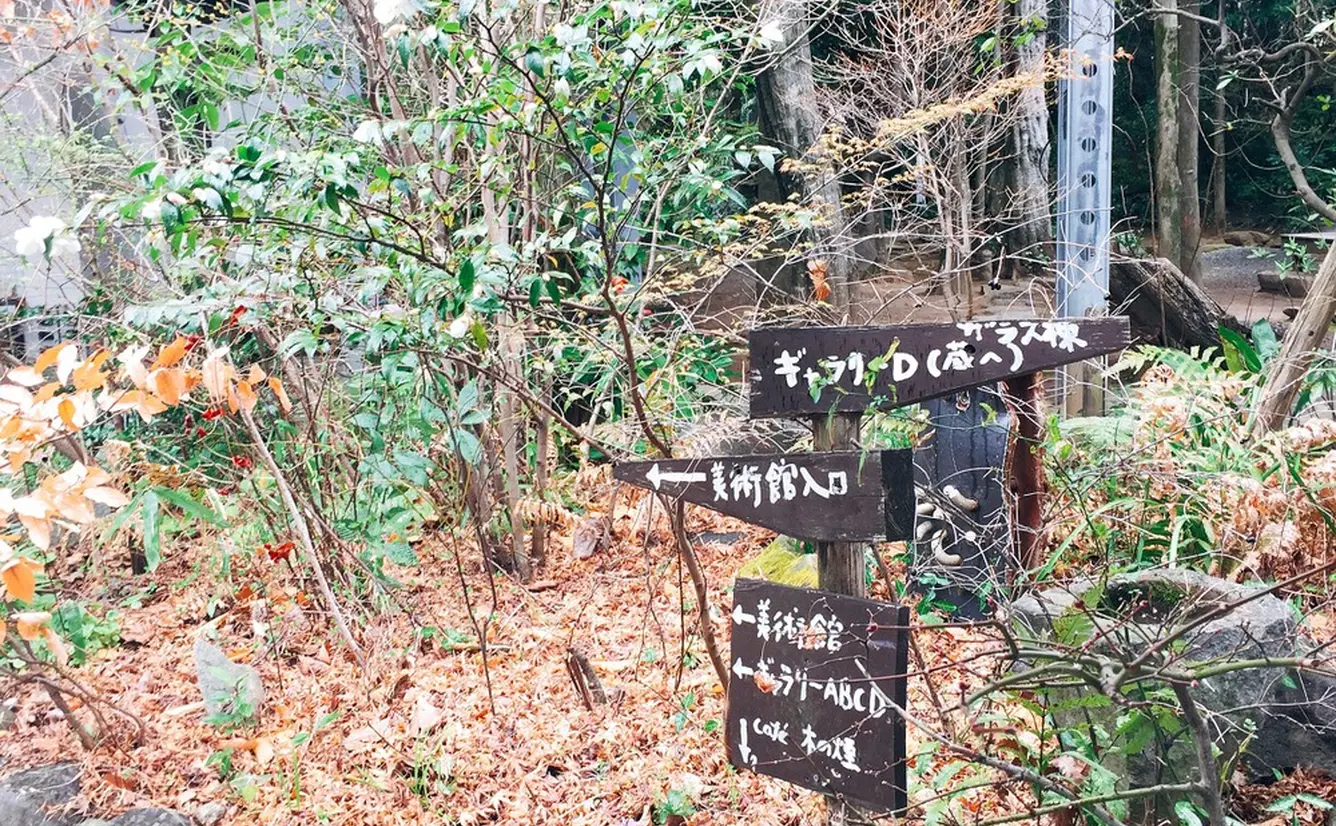 ガラス棟
ギャラリーD(蔵へ)
←美術館入口
←美術館
←ギャラリーABCD
↓café 木の燻